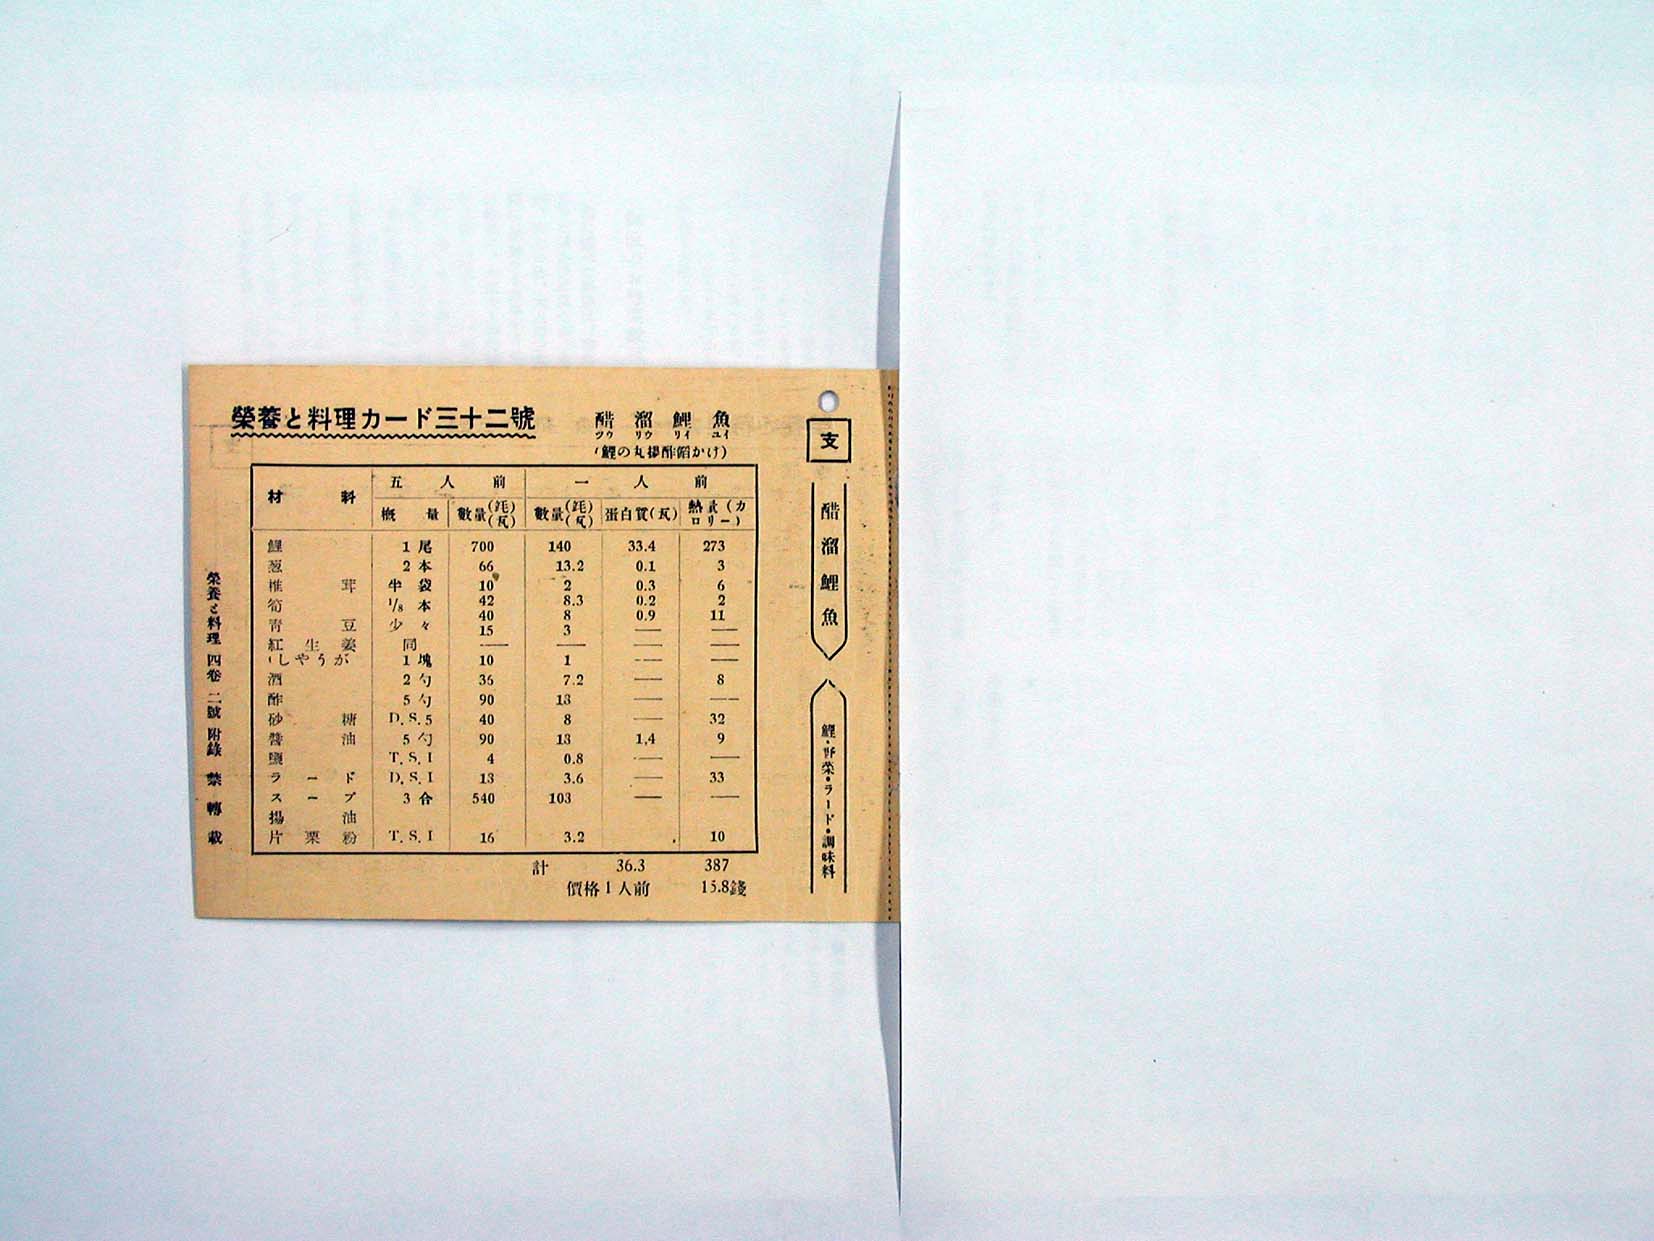 榮養と料理カード三十二號
醋溜鯉魚
ツゥ リウ リイ ユイ
(鯉の丸揚酢餡かけ)
材料 五人前 一人前
概量 數量(瓱)(瓦) 數量(瓱)(瓦) 蛋白質(瓦) 熱量(カロリー)
鯉 1尾 700 140 33.4 273
葱 2本 66 13.2 0.1 3
椎茸 半袋 10 2 0.3 6
筍 1/8本 42 8.3 0.2 2
青豆 少々 40 8 0.9 11
15 3 — —
紅生姜 同 — — — —
しやうが 1塊 10 1 — —
酒 2勺 36 7.2 — 8
酢 5勺 90 18 — —
砂糖 D.S.5 40 8 — 32
醬油 5勺 90 18 1,4 9
鹽 T.S.I 4 0.8 — —
ラード D.S.I 18 3.6 — 33
スープ 3合 540 108 — —
揚油
片栗粉 T.S.I 16 3.2 10
計 36.3 387
價格1人前 15.8錢
支
醋溜鯉魚
鯉・野菜・ラード・調味料
榮養と料理 四卷二號附錄 禁轉載